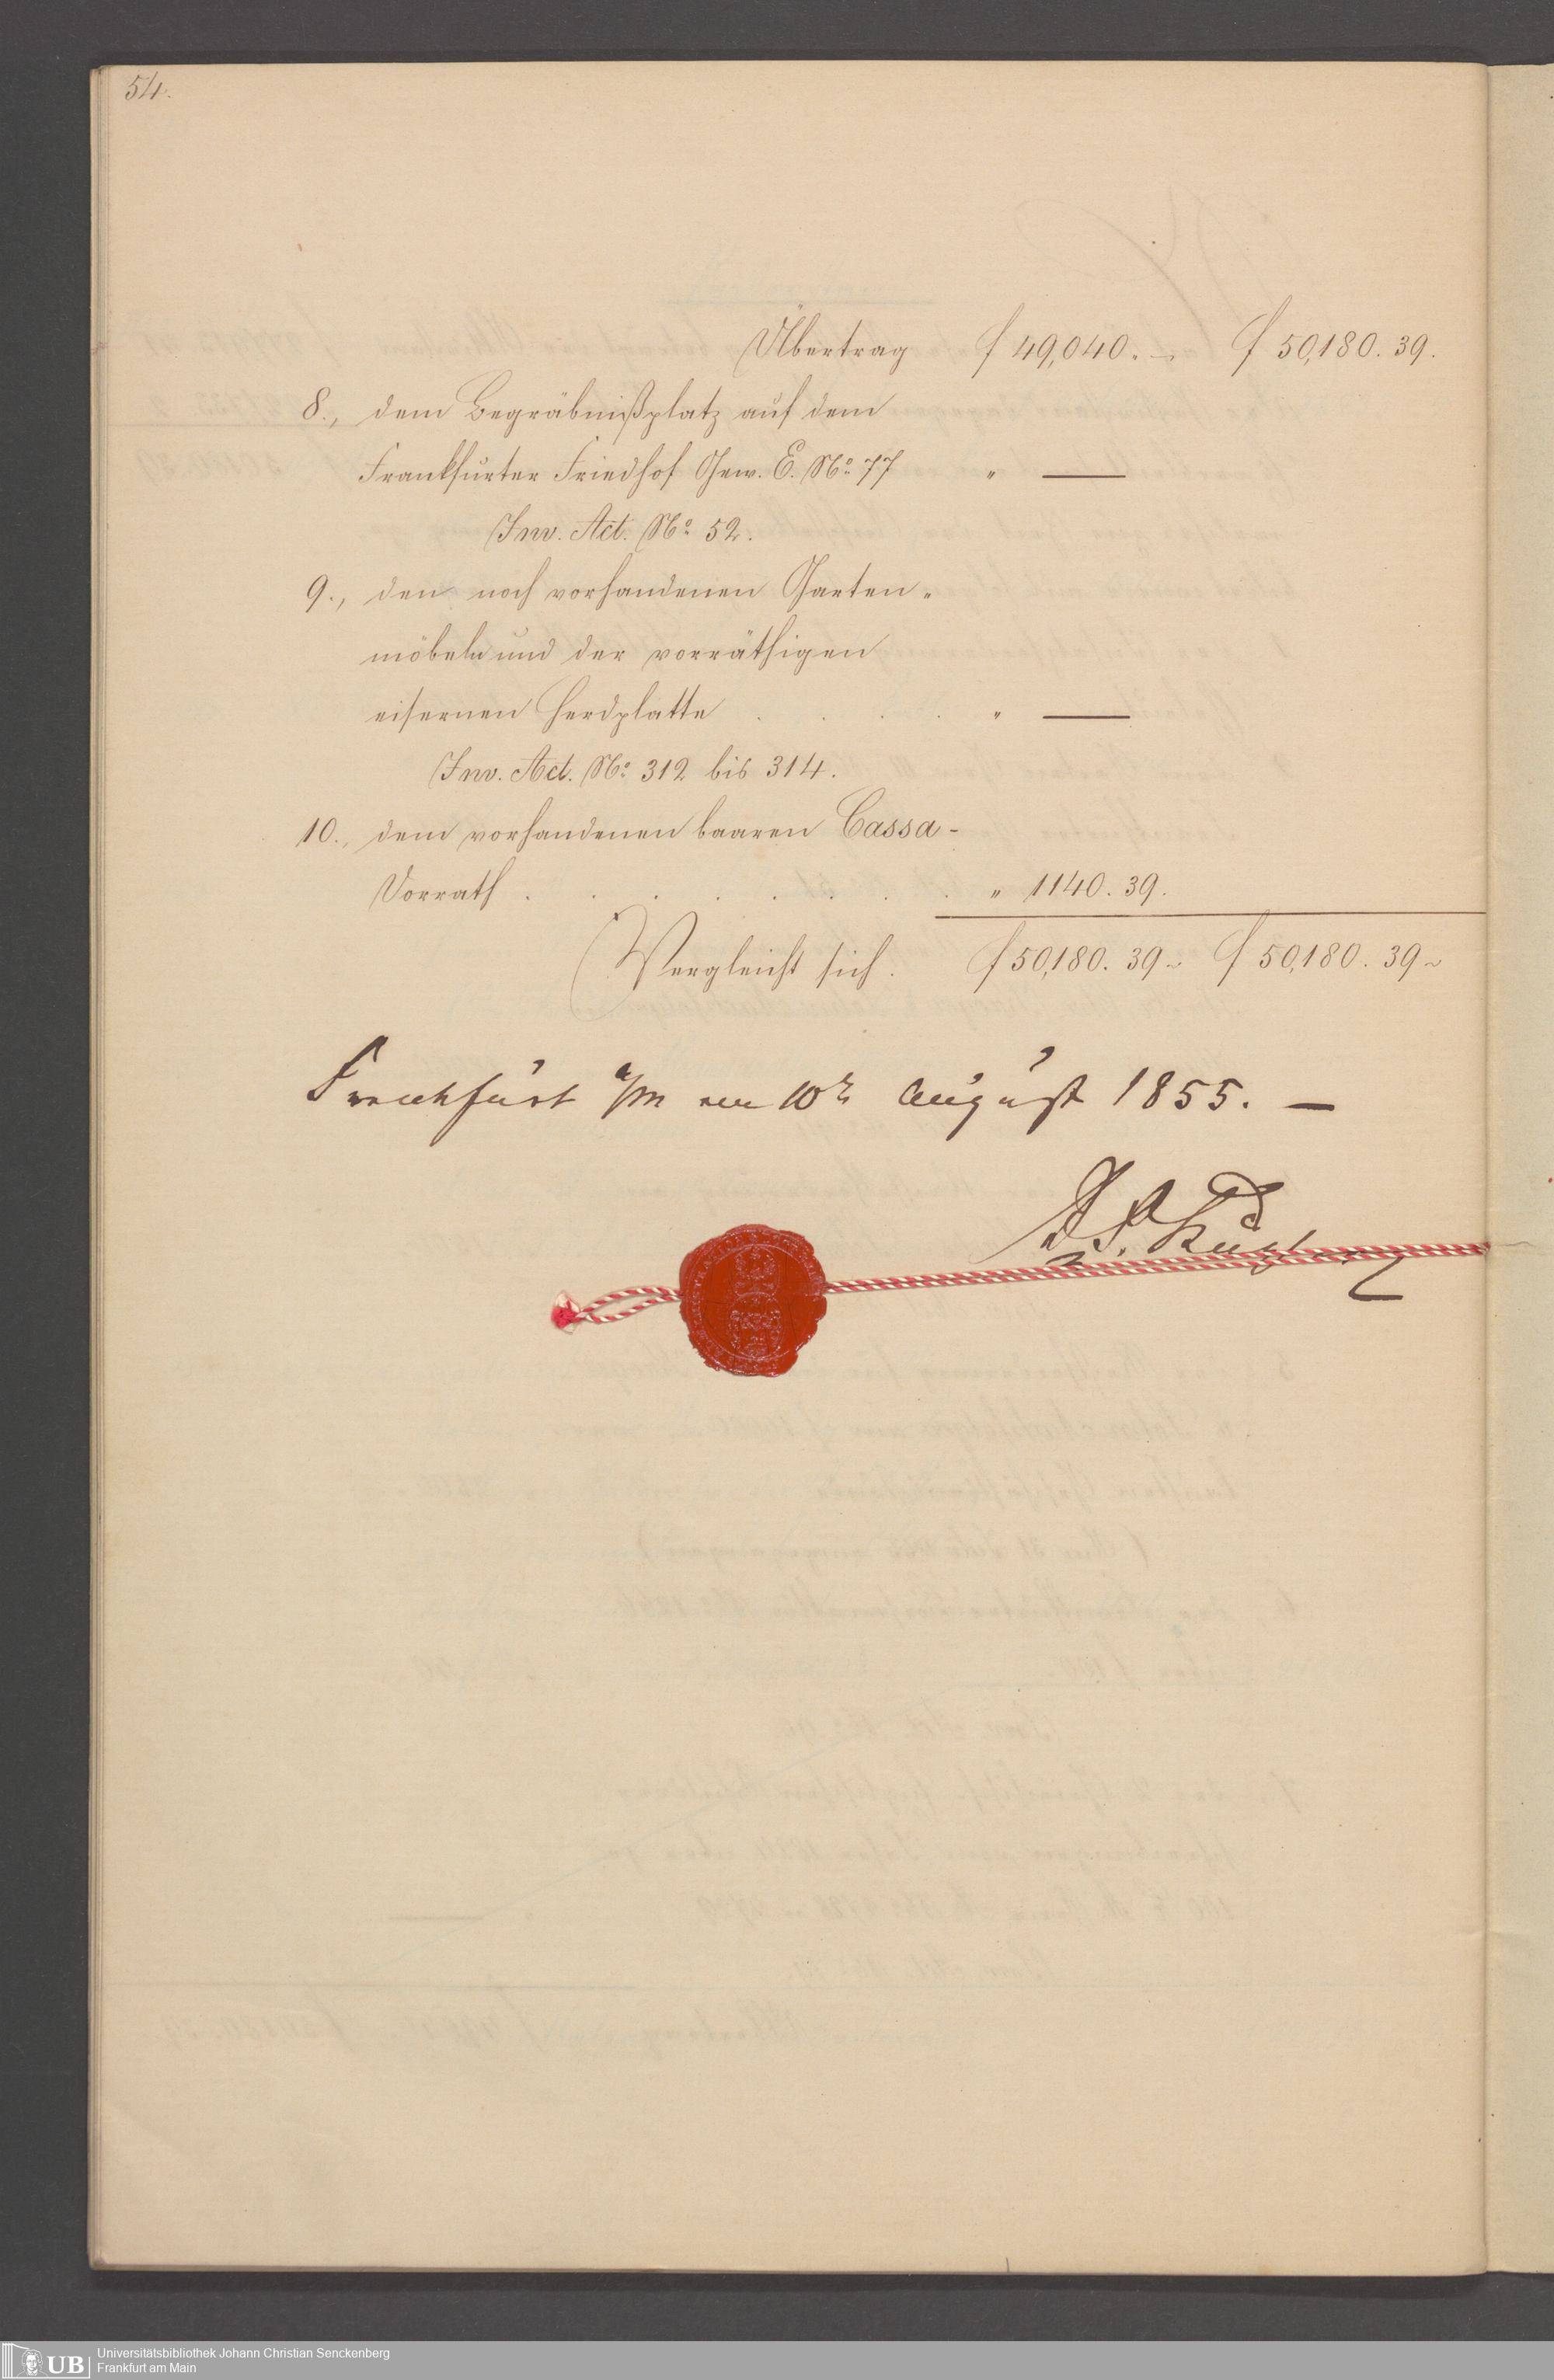 54.
Übertrag f 49,040. — f 50,180. 39.
8., dem Begräbnißplatz auf dem
Frankfurter Friedhof Gew. E. No. 77 " —
Inv. Act. No. 52.
9., den noch vorhandenen Garten-
möbeln und der vorräthigen
eisernen Herdplatte . . . . " —
Inv. Act. No. 312 bis 314.
10., dem vorhandenen baaren Cassa-
Vorrath . . . . . . . . " 1140. 39.
Vergleicht sich. f 50,180. 39 ~ f 50,180. 39 ~
Frankfurt a/m den 10n August 1855. —
UB Universitätsbibliothek Johann Christian Senckenberg
Frankfurt am Main